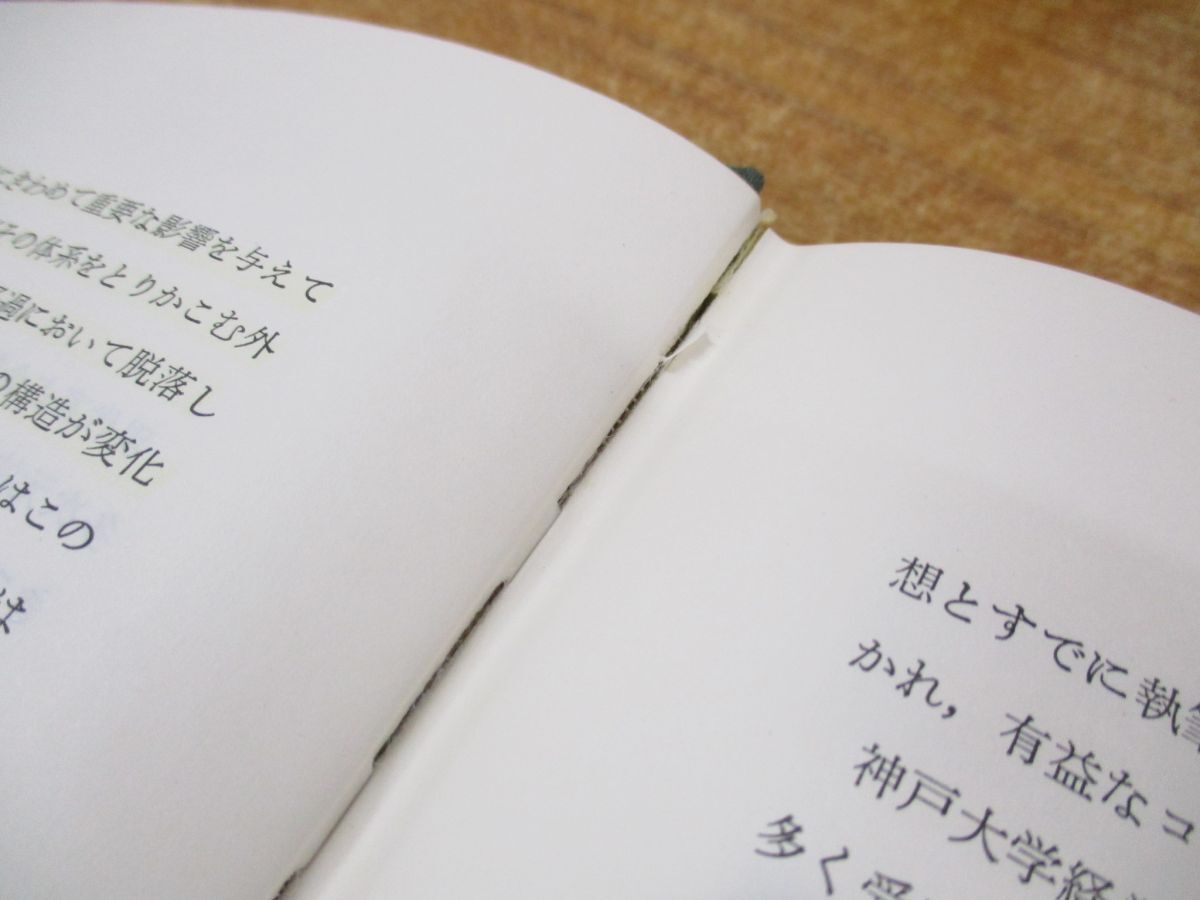 にきわめて重要な影響を与えて
その体系をとりかこむ外
過において脱落し
の構造が変化
はこの
は
想とすでに執筆
かれ，有益なコ
神戸大学経
多く受